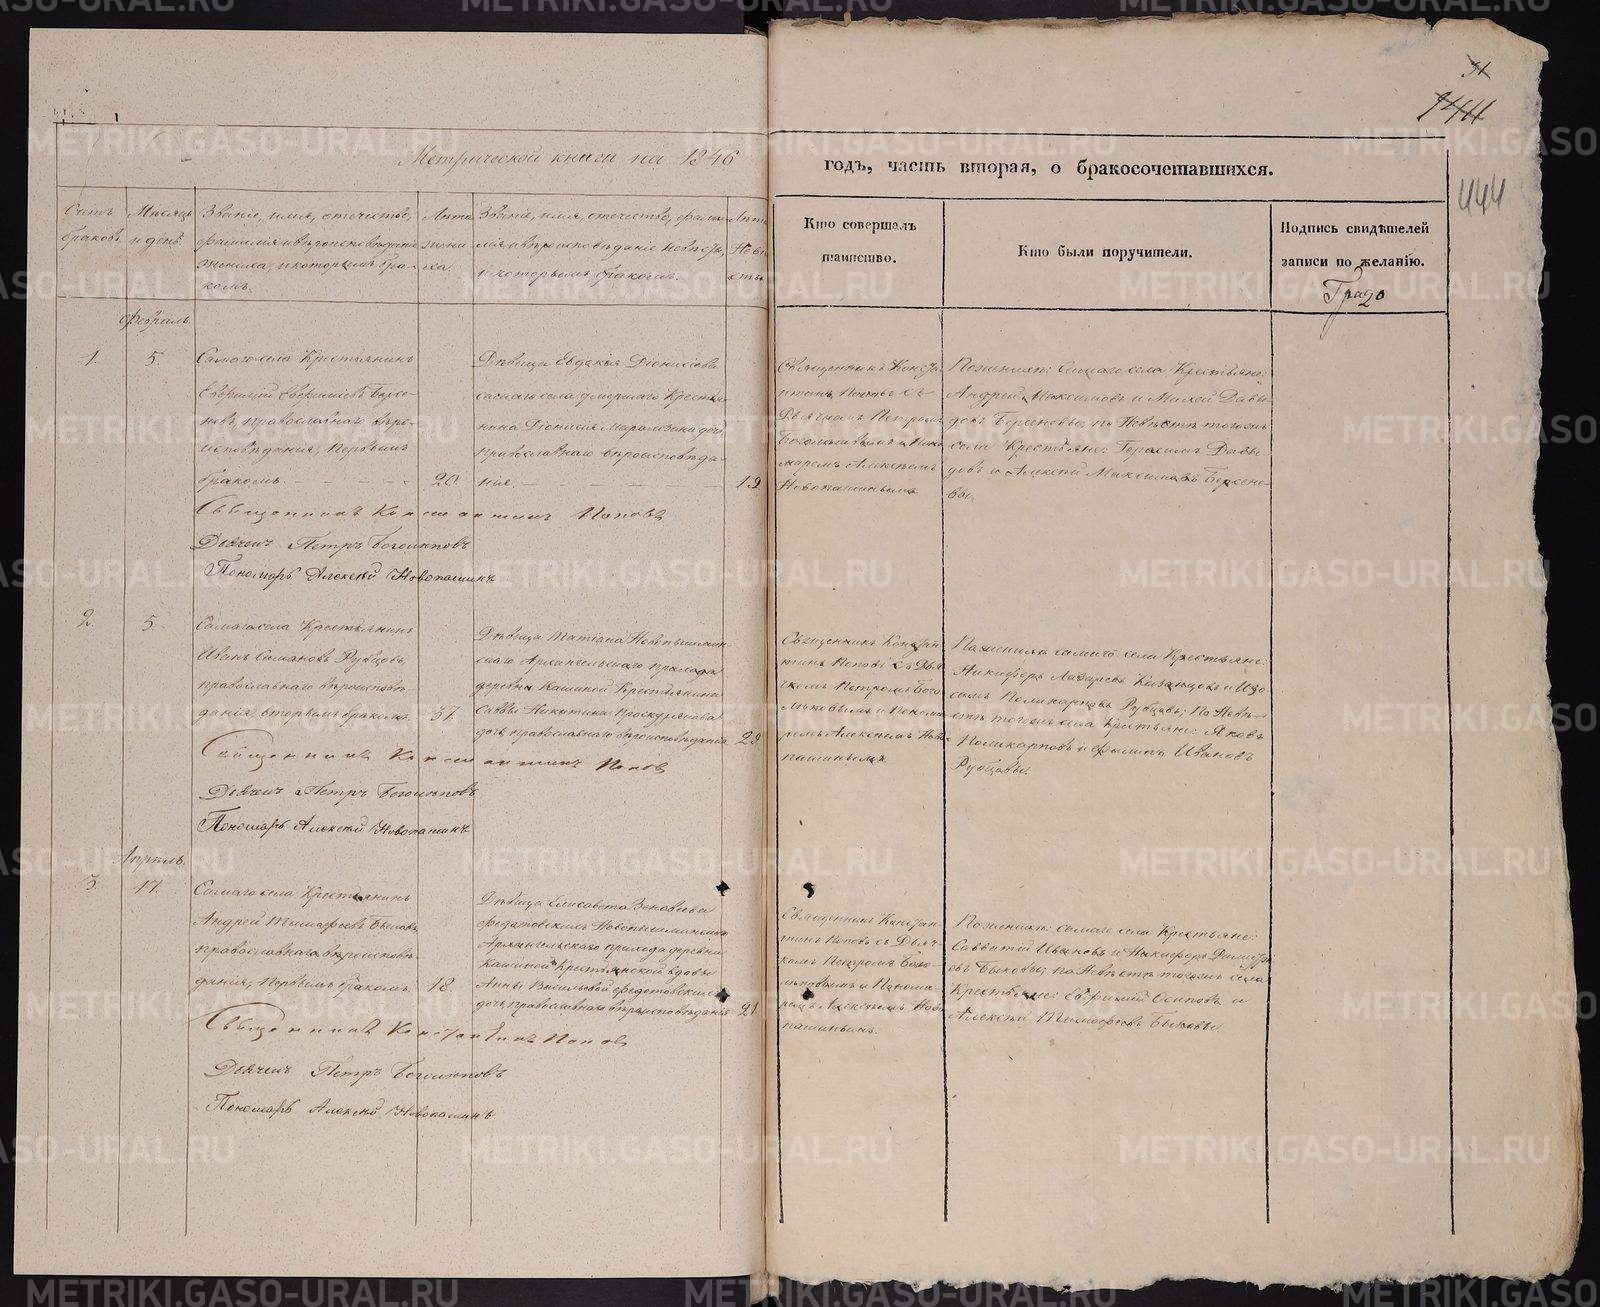 31
444
Метрической книги на 1846
годъ, часть вторая, о бракосочетавшихся.
444
Счетъ
браковъ.
Мѣсяцъ
и день.
Званіе, имя, отечество,
фамилія и вѣроисповѣданіе
жениха, и которымъ бра-
комъ.
Лѣта
жени
ха.
Званіе, имя, отечество, фами
лія и вѣроисповѣданіе невѣсты,
и которымъ бракомъ.
Лѣта
Невѣ
сты.
Кто совершалъ
таинство.
Кто были поручители.
Подпись свидѣтелей
записи по желанію.
Февраль.
1.
5.
Самаго села Крестьянинъ
Евфимій Евфимовъ Берсе-
невъ, православнаго вѣро-
исповѣданія, первымъ
бракомъ.
20
Дѣвица Евдокія Діонисіева
самаго села умершаго Крестья-
нина Діонисія дочь,
православнаго вѣроисповѣда-
нія.
19
Священникъ Конста
нтинъ Поповъ съ
Дьячкомъ Петромъ
Боголѣповымъ и Поно
маремъ Алексѣемъ
Новопашинымъ
По женихѣ: самаго села Крестьяне:
Андрей Максимовъ и Давы-
довъ Берсеневы; по Невѣстѣ тогожъ
села Крестьяне: Герасимъ Давы-
довъ и Алексѣй Максимовъ Берсене-
вы.
Священникъ Константинъ Поповъ
Дьячекъ Петръ Боголѣповъ
Пономарь Алексѣй Новопашинъ
2.
5.
Самаго села Крестьянинъ
Иванъ Рубцовъ,
православнаго вѣроисповѣ-
данія, вторымъ бракомъ.
37.
Дѣвица Татіана Новопышмин-
скаго Архангельскаго прихода
деревни Кашиной Крестьянина
Саввы Никитина Проскурякова
дочь, православнаго вѣроисповѣданія
29
Священникъ Констан
тинъ Поповъ съ Дья
чкомъ Петромъ Бого
лѣповымъ и Понома
ремъ Алексѣемъ Ново
пашинымъ
По женихѣ самаго села Крестьяне
Никифоръ Лазаревъ Казанцовъ и Изо
симъ Поликарповъ Рубцовъ; по Невѣ-
стѣ тогожъ села Крестьяне: Яковъ
Поликарповъ и Филипъ Ивановъ
Рубцовы.
Священникъ Константинъ Поповъ
Дьячекъ Петръ Боголѣповъ
Пономарь Алексѣй Новопашинъ
Апрѣль.
3.
17.
Самаго села Крестьянинъ
Андрей Тимофеевъ Быковъ
православнаго вѣроисповѣ-
данія, первымъ бракомъ.
18
Дѣвица Елисавета Зиновьева
Федотовскихъ Новопышминскаго
Архангельскаго прихода деревни
Кашиной Крестьянской вдовы
Анны Васильевой Федотовскихъ
дочь, православнаго вѣроисповѣданія
21.
Священникъ Констан
тинъ Поповъ съ Дьяч-
комъ Петромъ Бого-
лѣповымъ и Понома
ремъ Алексѣемъ Ново
пашинымъ.
По женихѣ: самаго села Крестьяне:
Савватій Ивановъ и Никифоръ
евъ Быковы; по Невѣстѣ тогожъ села
Крестьяне: Евфимій Осиповъ и
Алексѣй Тимофеевъ Быковы.
Священникъ Константинъ Поповъ
Дьячекъ Петръ Боголѣповъ
Пономарь Алексѣй Новопашинъ
METRIKI.GASO-URAL.RU